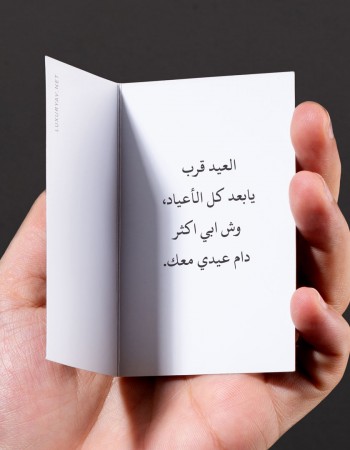 LUXURYBY.NET
العيد قرب
يابعد كل الأعياد،
وش ابي اكثر
دام عيدي معك.